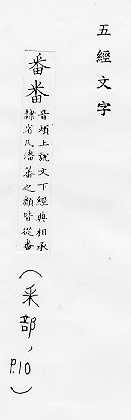 五經文字
番番
音煩上說文下經典相承
隸省凡潘蕃之類皆從番
(釆部, P.10)